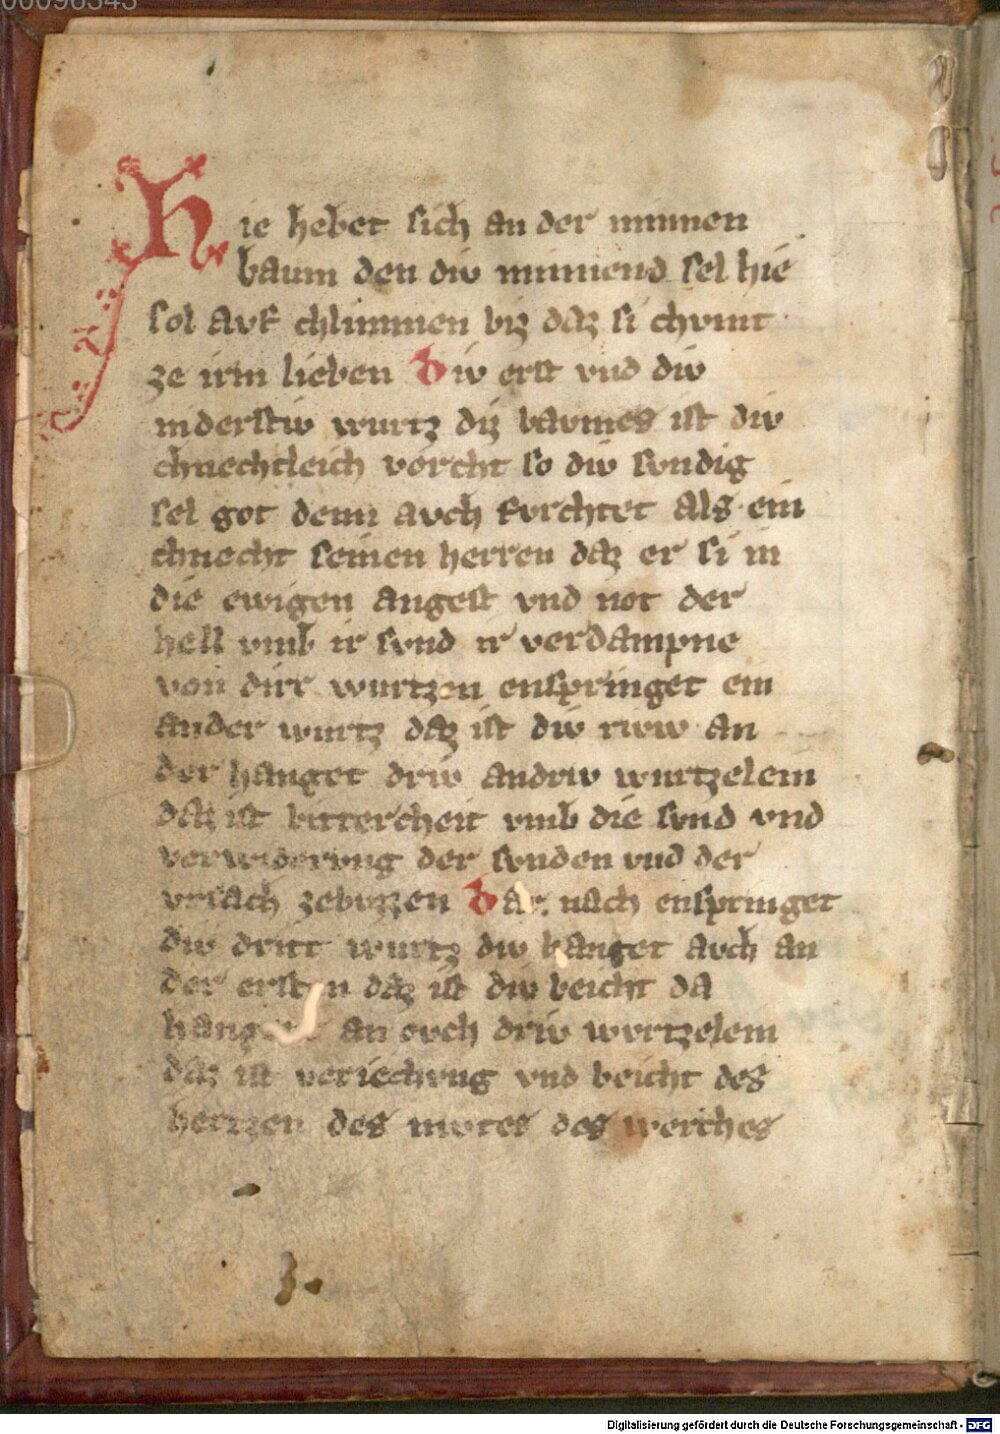 00096343
Hie hebet sich an der minnen
baum den div minnend sel hie
sol avf chlimmen biz daz si chvmt
ze irm lieben Div erst vnd div
niderstiv wurtz diz bavmes ist div
chnechtleich vorcht so div svndig
sel got denn avch fvrchtet als ein
chnecht seinen herren daz er si in
die ewigen angest vnd not der
hell vmb ir svnd ir verdampne
von dirr wurtzen enspringet ein
ander wurtz daz ist div riw an
der hanget driv andriv wurtzelein
daz ist bittercheit vmb die svnd vnd
verwiderung der svnden vnd der
vrsach zebvzzen Dar nach enspringet
div dritt wurtz div hanget avch an
der ersten daz ist div beicht da
an ovch driv wvrtzelein
daz ist veriechvng vnd beicht des
hertzen des mvtes des werches
Digitalisierung gefördert durch die Deutsche Forschungsgemeinschaft - DFG